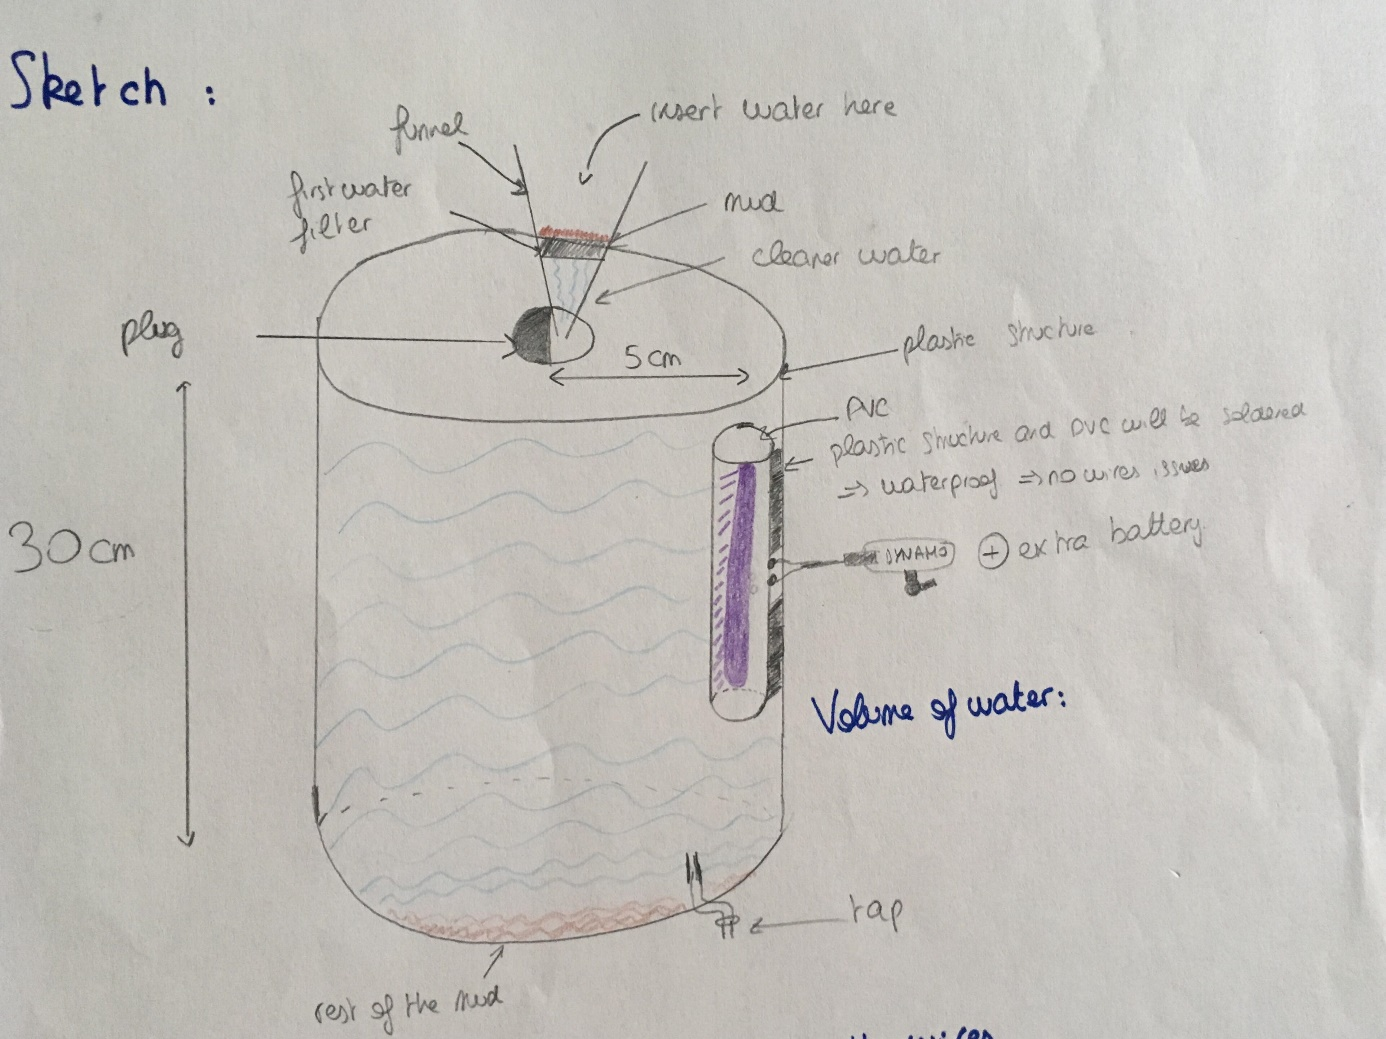 Sketch :
funnel
insert water here
first water
filter
mud
cleaner water
plug
5cm
plastic structure
PVC
plastic structure and PVC will be soldered
⇒ waterproof ⇒ no wires issues
30cm
DYNAMO
+ extra battery
Volume of water:
tap
rest of the mud
wires